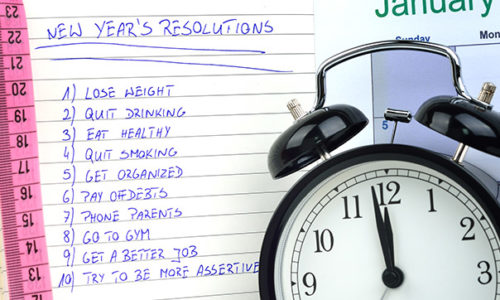 January
Sunday
Mon
5
NEW YEAR'S RESOLUTIONS
1) LOSE WEIGHT
2) QUIT DRINKING
3) EAT HEALTHY
4) QUIT SMOKING
5) GET ORGANIZED
6) PAY OF DEBTS
7) PHONE PARENTS
8) GO TO GYM
9) GET A BETTER JOB
10) TRY TO BE MORE ASSERTIVE
23
22
21
20
19
18
17
16
15
14
13
12
1
2
3
9
10
11